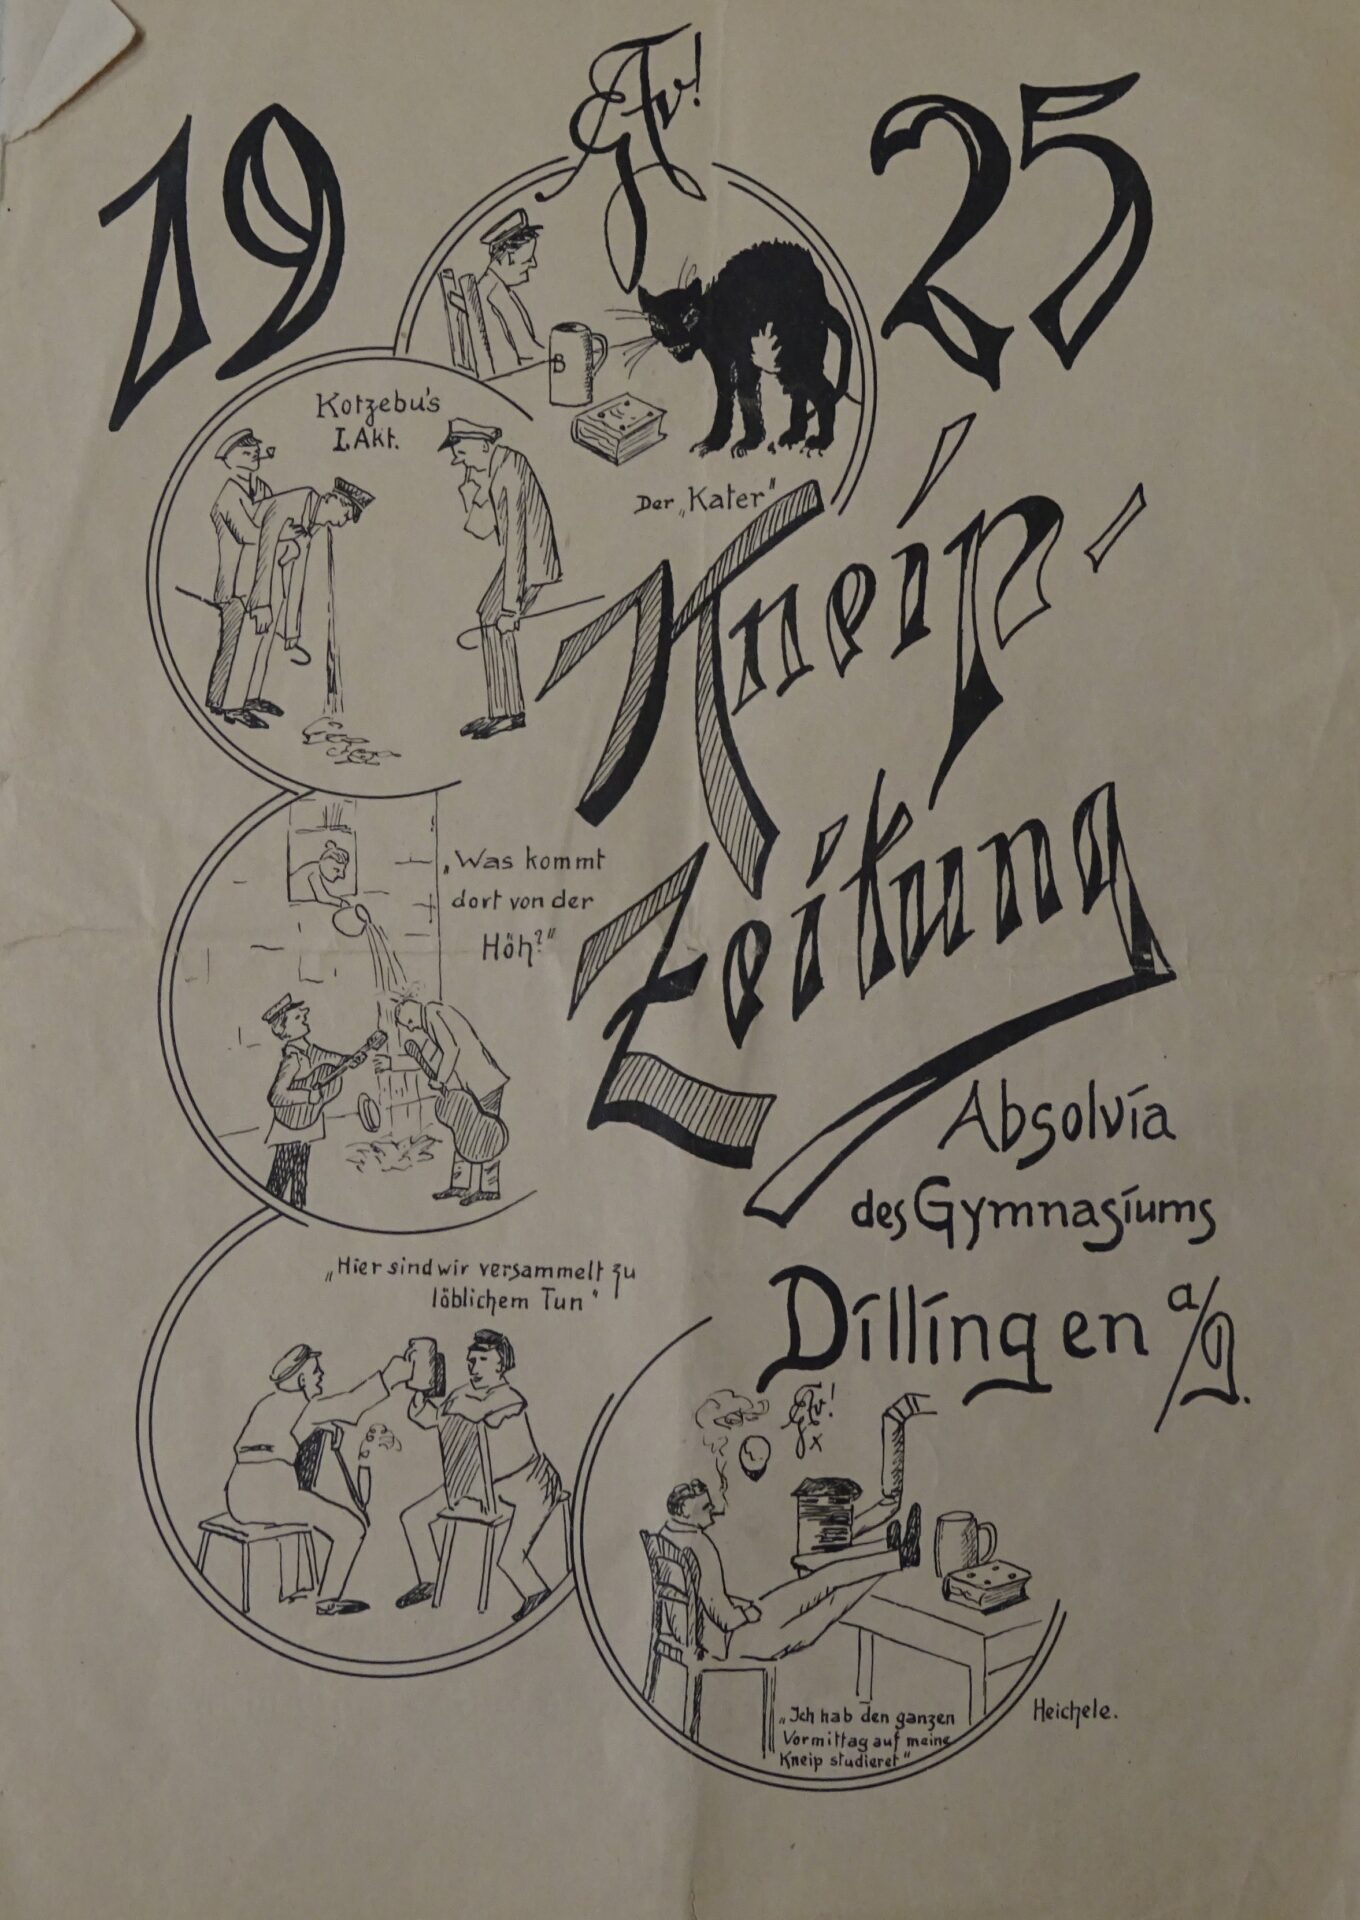 1925
Kotzebu's
I. Akt.
Der „Kater"
Kneip-
Zeitung
„Was kommt
dort von der
Höh?"
Absolvia
des Gymnasiums
Dillingen a/D.
„Hier sind wir versammelt zu
löblichem Tun"
B
„Ich hab den ganzen
Vormittag auf meine
Kneip studieret"
Heichele.